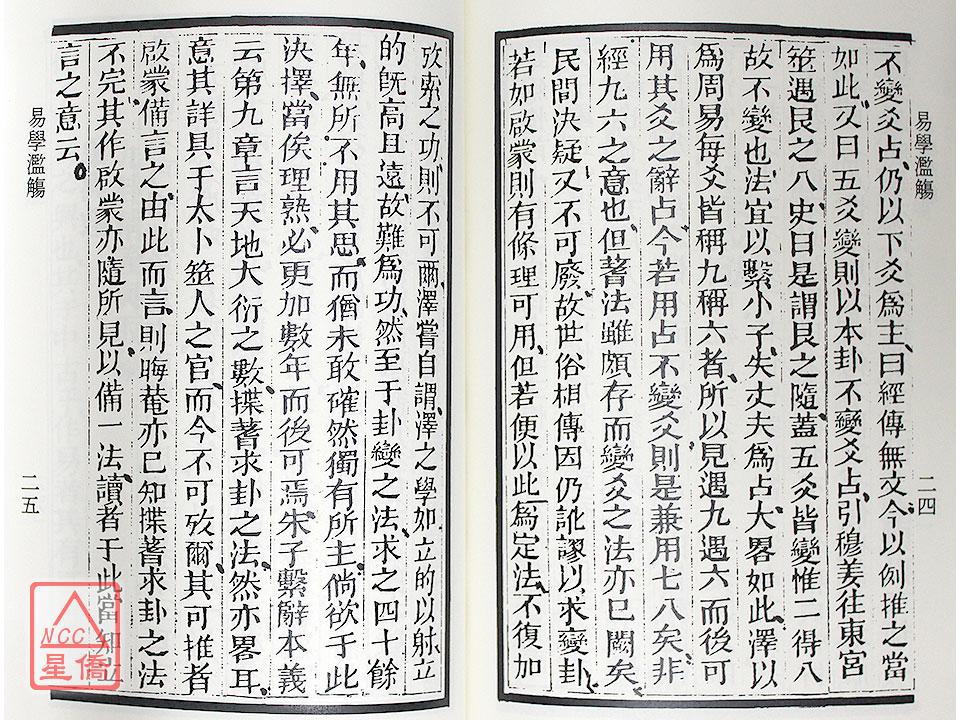 易學濫觴
二四
不變爻占仍以下爻爲主曰經傳無文今以例推之當
如此又曰五爻變則以本卦不變爻占引穆姜往東宮
筮遇艮之八史曰是謂艮之隨蓋五爻皆變惟二得八
故不變也法宜以繫小子失丈夫爲占大畧如此澤以
爲周易每爻皆稱九稱六者所以見遇九遇六而後可
用其爻之辭占今若用占不變爻則是兼用七八矣非
經九六之意也但蓍法雖頗存而變爻之法亦已闕矣
民間決疑又不可廢故世俗相傳因仍訛謬以求變卦
若如啟蒙則有條理可用但若便以此爲定法不復加
攷索之功則不可爾澤嘗自謂澤之學如立的以射立
的旣高且遠故難爲功然至于卦變之法求之四十餘
年無所不用其思而猶未敢確然獨有所主倘欲于此
決擇當俟理熟必更加數年而後可焉朱子繫辭本義
云第九章言天地大衍之數揲蓍求卦之法然亦畧耳
意其詳具于太卜筮人之官而今不可攷爾其可推者
啟蒙備言之由此而言則晦菴亦已知揲蓍求卦之法
不完其作啟蒙亦隨所見以備一法讀者于此當知立
言之意云
易學濫觴
二五
NCC
星僑